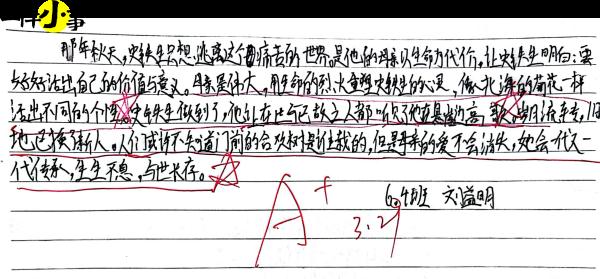 件小事
那年秋天,史铁生只想逃离这个痛苦的世界。是他的母亲以生命为代价,让史铁生明白:要
好好活出自己的价值与意义。母亲是伟大,用生命的烈火重塑史铁生的心灵,像北海的菊花一样
活出不同的个性。史铁生做到了,他让在上与已故之人都
地已换了新人。人们或许不知道门前的合欢树是谁栽的,但是母亲的爱不会消失,她会一代又一
代传承,生生不息,与世长存。
A+
6.4班 刘益明
3.29